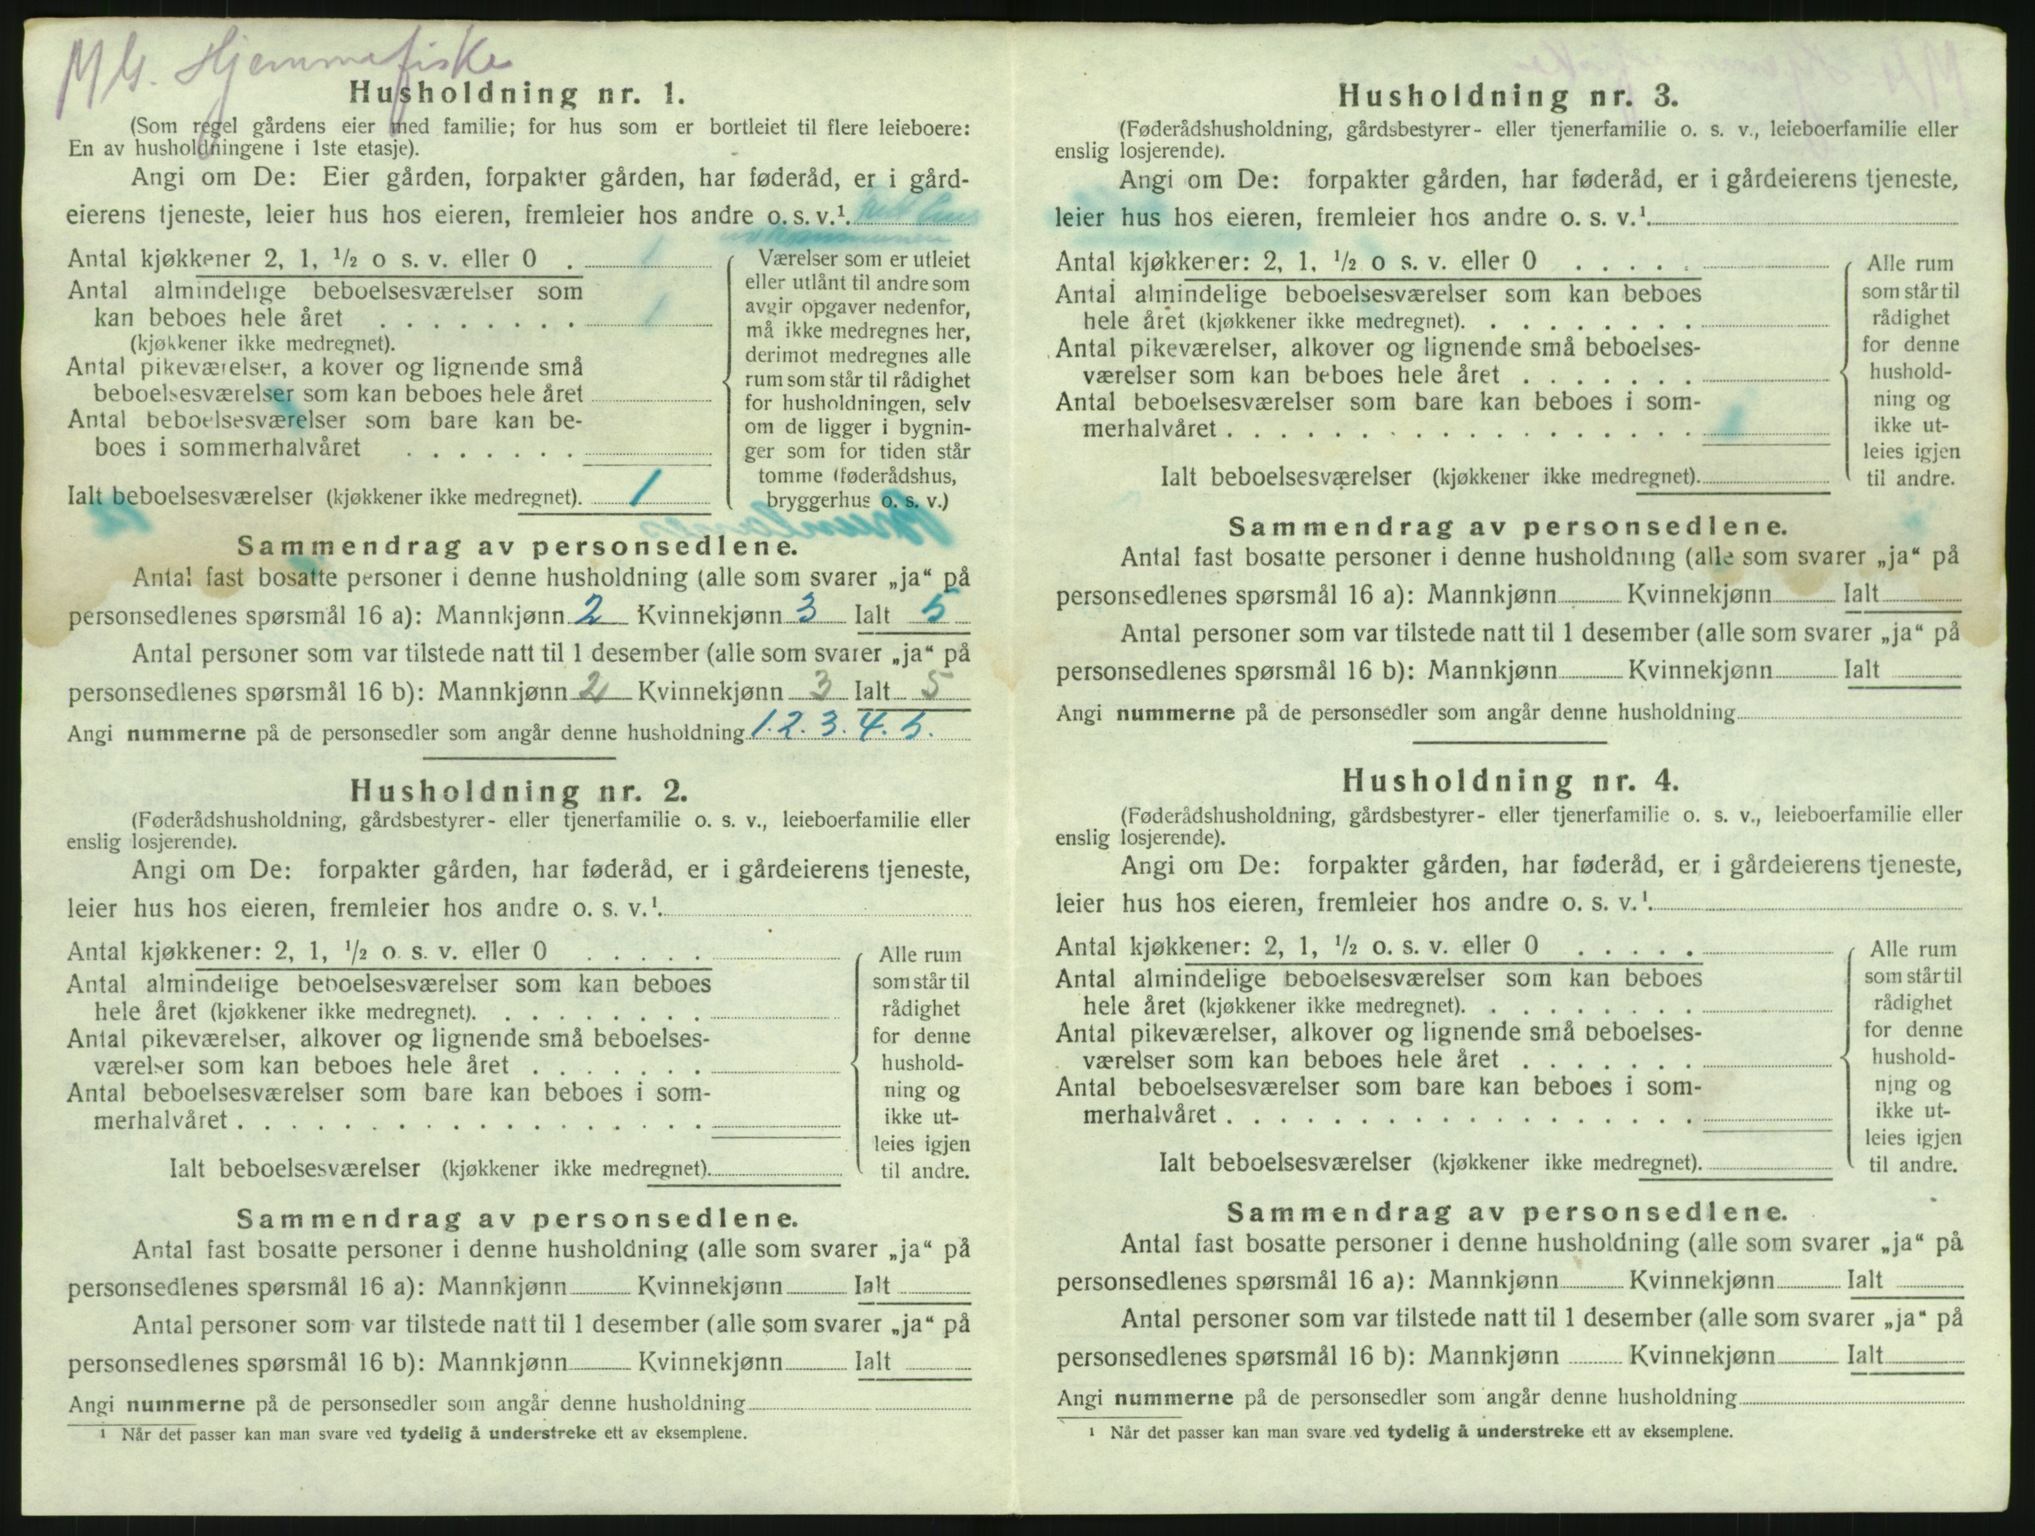 M G. Hjemmefiske
Husholdning nr. 1.
(Som regel gårdens eier med familie; for hus som er bortleiet til flere leieboere:
En av husholdningene i 1ste etasje).
Angi om De: Eier gården, forpakter gården, har føderåd, er i gård-
eierens tjeneste, leier hus hos eieren, fremleier hos andre o. s. v.¹
Antal kjøkkener 2, 1, ½ o s. v. eller 0 . 1
Antal almindelige beboelsesværelser som
kan beboes hele året . . . . . . . . 1
(kjøkkener ikke medregnet).
Antal pikeværelser, a kover og lignende små
beboelsesværelser som kan beboes hele året
Antal beboelsesværelser som bare kan be-
boes i sommerhalvåret . . . . . . .
Ialt beboelsesværelser (kjøkkener ikke medregnet). 1
Værelser som er utleiet
eller utlånt til andre som
avgir opgaver nedenfor,
må ikke medregnes her,
derimot medregnes alle
rum som står til rådighet
for husholdningen, selv
om de ligger i bygnin-
ger som for tiden står
tomme (føderådshus,
bryggerhus o. s. v.)
Sammendrag av personsedlene.
Antal fast bosatte personer i denne husholdning (alle som svarer „ja“ på
personsedlenes spørsmål 16 a): Mannkjønn 2 Kvinnekjønn 3 Ialt 5
Antal personer som var tilstede natt til 1 desember (alle som svarer „ja“ på
personsedlenes spørsmål 16 b): Mannkjønn 2 Kvinnekjønn 3 Ialt 5
Angi nummerne på de personsedler som angår denne husholdning 1. 2. 3. 4. 5.
Husholdning nr. 2.
(Føderådshusholdning, gårdsbestyrer- eller tjenerfamilie o. s. v., leieboerfamilie eller
enslig losjerende).
Angi om De: forpakter gården, har føderåd, er i gårdeierens tjeneste,
leier hus hos eieren, fremleier hos andre o. s. v.¹.
Antal kjøkkener: 2, 1, ½ o. s. v. eller 0 . . . . .
Antal almindelige beboelsesværelser som kan beboes
hele året (kjøkkener ikke medregnet). . . . . . . . .
Antal pikeværelser, alkover og lignende små beboelses-
værelser som kan beboes hele året . . . . . . .
Antal beboelsesværelser som bare kan beboes i som-
merhalvåret . . . . . . . . . . . . . . . . . .
Ialt beboelsesværelser (kjøkkener ikke medregnet).
Alle rum
som står til
rådighet
for denne
hushold-
ning og
ikke ut-
leies igjen
til andre.
Sammendrag av personsedlene.
Antal fast bosatte personer i denne husholdning (alle som svarer „ja“ på
personsedlenes spørsmål 16 a): Mannkjønn Kvinnekjønn Ialt
Antal personer som var tilstede natt til 1 desember (alle som svarer „ja“ på
personsedlenes spørsmål 16 b): Mannkjønn Kvinnekjønn Ialt
Angi nummerne på de personsedler som angår denne husholdning
¹ Når det passer kan man svare ved tydelig å understreke ett av eksemplene.
Husholdning nr. 3.
(Føderådshusholdning, gårdsbestyrer- eller tjenerfamilie o. s. v., leieboerfamilie eller
enslig losjerende).
Angi om De: forpakter gården, har føderåd, er i gårdeierens tjeneste,
leier hus hos eieren, fremleier hos andre o. s. v.¹.
Antal kjøkkener: 2, 1, ½ o s. v. eller 0 . . . . .
Antal almindelige beboelsesværelser som kan beboes
hele året (kjøkkener ikke medregnet). . . . . . . . .
Antal pikeværelser, alkover og lignende små beboelses-
værelser som kan beboes hele året . . . . . . .
Antal beboelsesværelser som bare kan beboes i som-
merhalvåret . . . . . . . . . . . . . . . . . .
Ialt beboelsesværelser (kjøkkener ikke medregnet).
Alle rum
som står til
rådighet
for denne
hushold-
ning og
ikke ut-
leies igjen
til andre.
Sammendrag av personsedlene.
Antal fast bosatte personer i denne husholdning (alle som svarer „ja“ på
personsedlenes spørsmål 16 a): Mannkjønn Kvinnekjønn Ialt
Antal personer som var tilstede natt til 1 desember (alle som svarer „ja“ på
personsedlenes spørsmål 16 b): Mannkjønn Kvinnekjønn Ialt
Angi nummerne på de personsedler som angår denne husholdning
Husholdning nr. 4.
(Føderådshusholdning, gårdsbestyrer- eller tjenerfamilie o. s. v., leieboerfamilie eller
enslig losjerende).
Angi om De: forpakter gården, har føderåd, er i gårdeierens tjeneste,
leier hus hos eieren, fremleier hos andre o. s. v.¹.
Antal kjøkkener: 2, 1, ½ o. s. v. eller 0 . . . . .
Antal almindelige beboelsesværelser som kan beboes
hele året (kjøkkener ikke medregnet). . . . . . . . .
Antal pikeværelser, alkover og lignende små beboelses-
værelser som kan beboes hele året . . . . . . .
Antal beboelsesværelser som bare kan beboes i som-
merhalvåret . . . . . . . . . . . . . . . . . .
Ialt beboelsesværelser (kjøkkener ikke medregnet).
Alle rum
som står til
rådighet
for denne
hushold-
ning og
ikke ut-
leies igjen
til andre.
Sammendrag av personsedlene.
Antal fast bosatte personer i denne husholdning (alle som svarer „ja“ på
personsedlenes spørsmål 16 a): Mannkjønn Kvinnekjønn Ialt
Antal personer som var tilstede natt til 1 desember (alle som svarer „ja“ på
personsedlenes spørsmål 16 b): Mannkjønn Kvinnekjønn Ialt
Angi nummerne på de personsedler som angår denne husholdning
¹ Når det passer kan man svare ved tydelig å understreke ett av eksemplene.